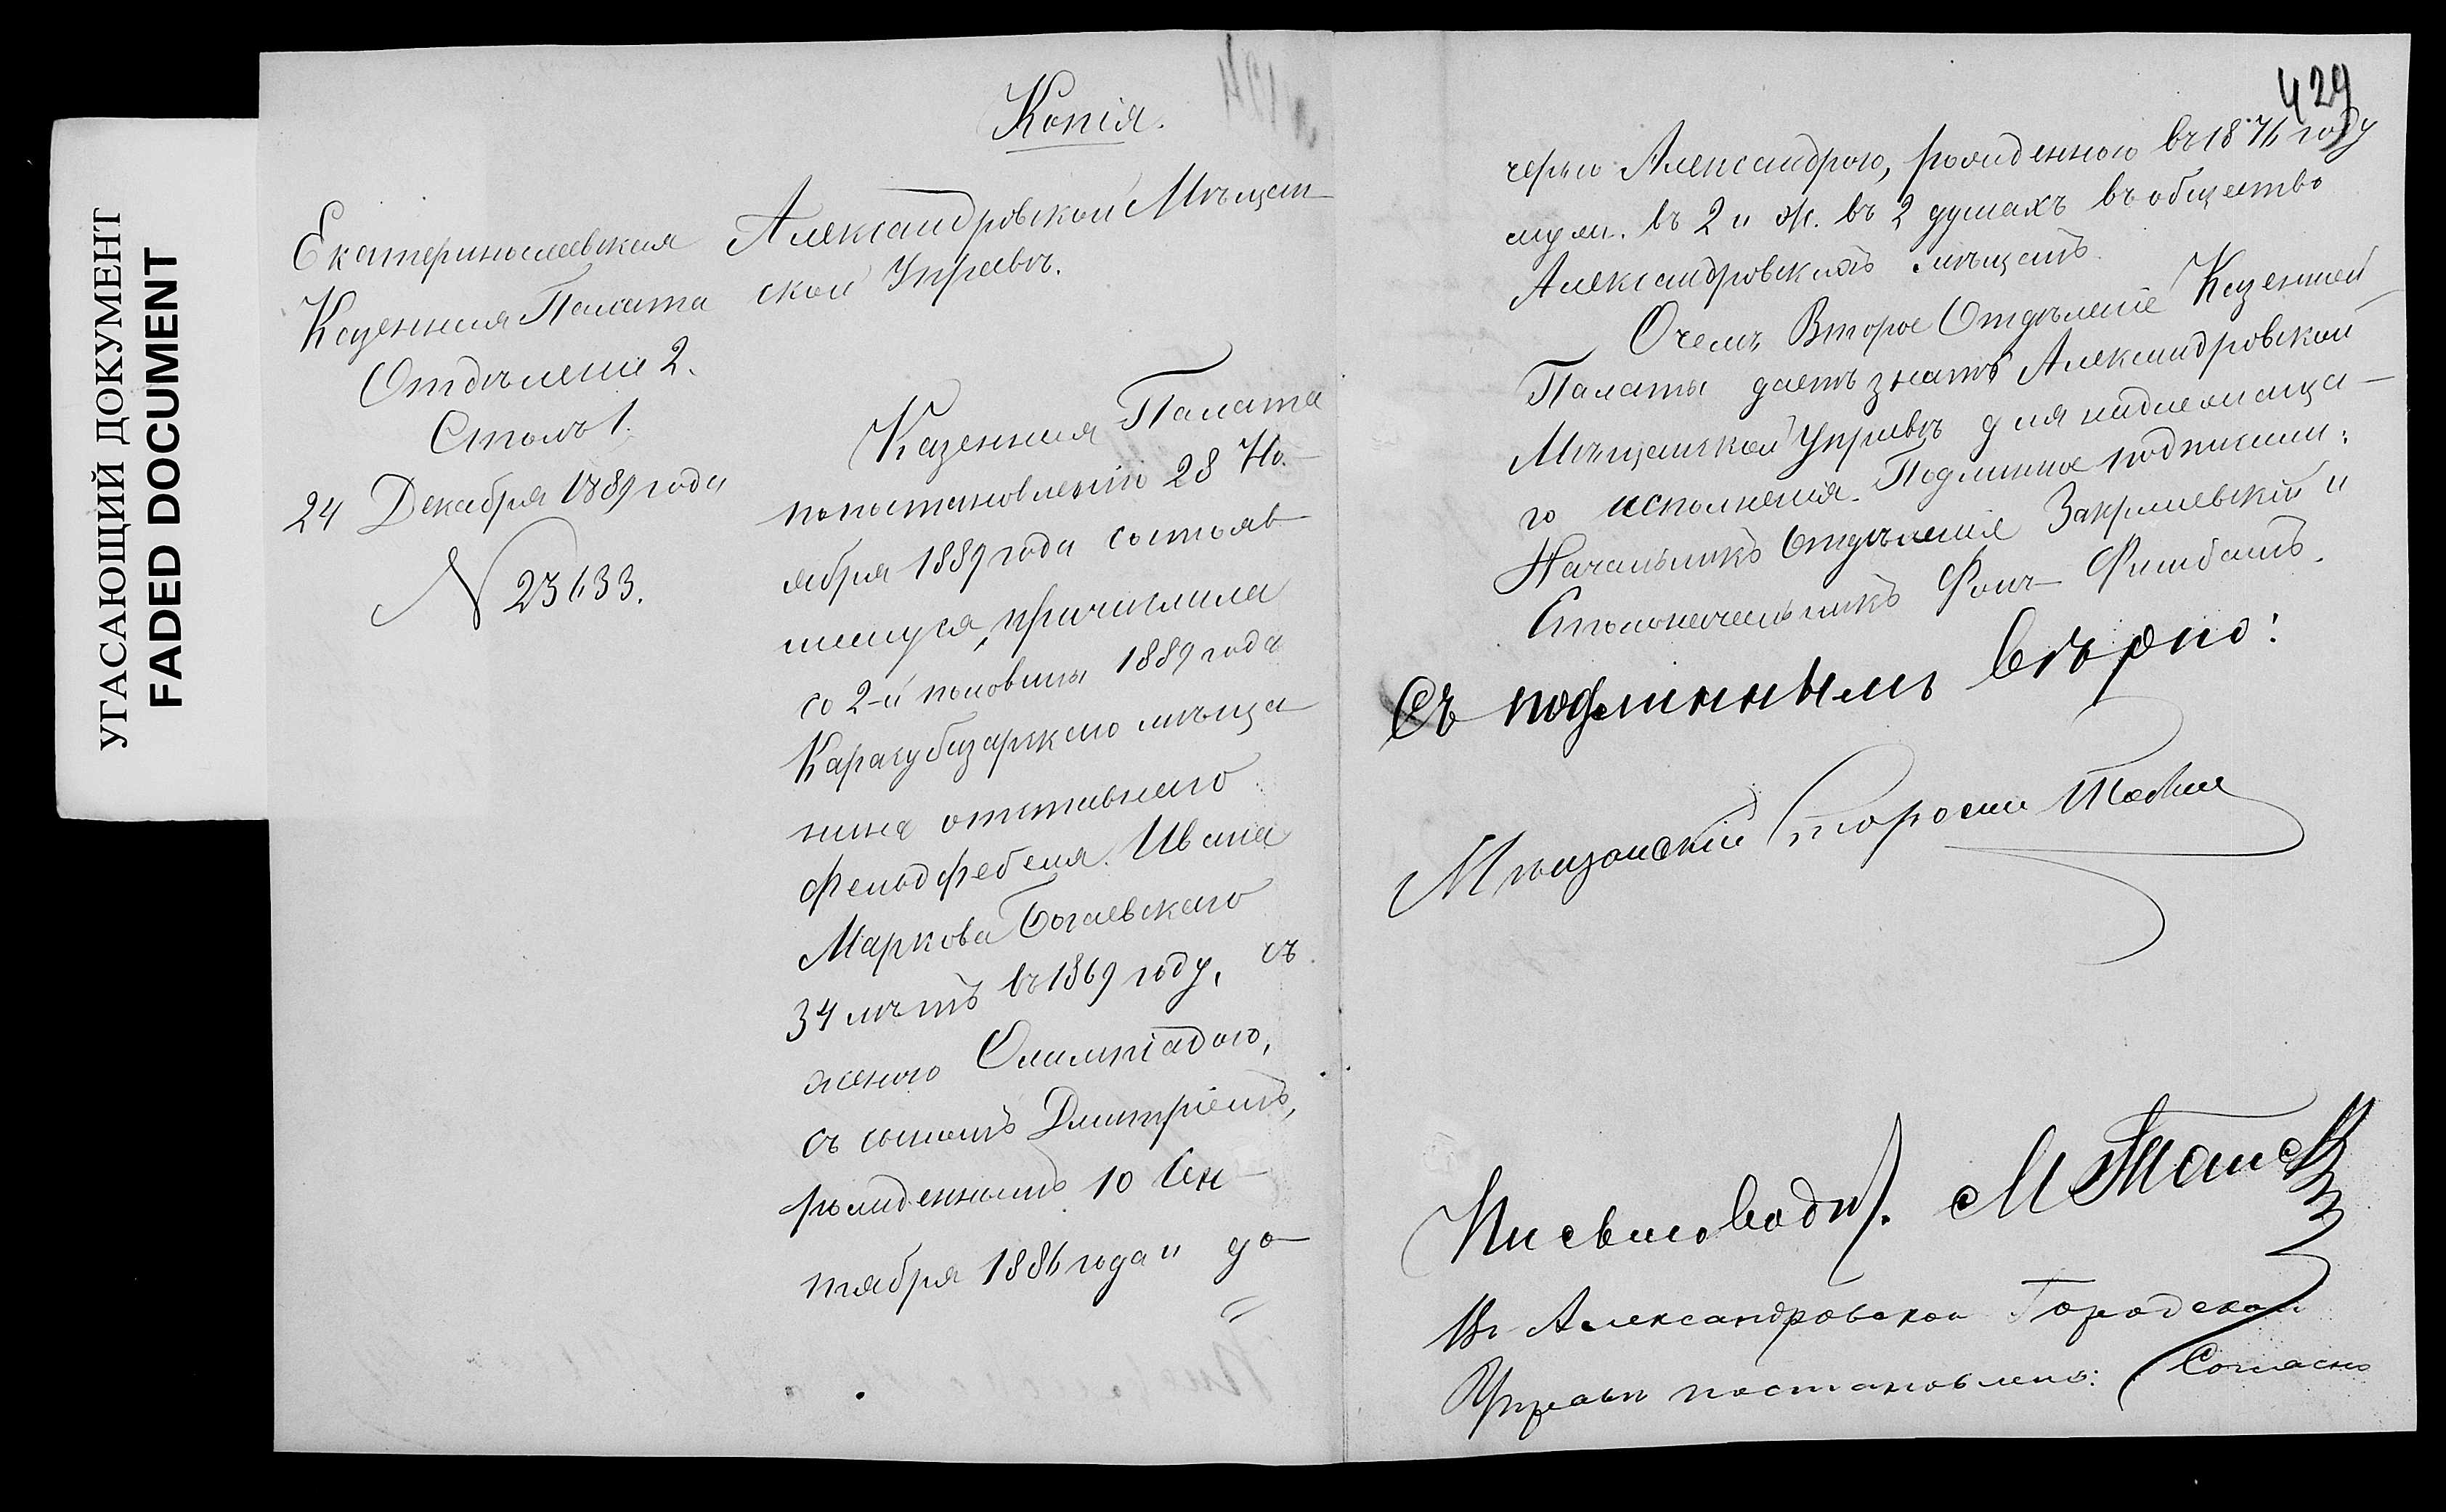 УГАСАЮЩИЙ ДОКУМЕНТ
FADED DOCUMENT
Копія.
Екатеринославская
Казенная Палата
Отдѣленіе 2.
Столъ 1.
24 Декабря 1889 года
N 23633.
Александровской Мѣщан-
ской Управѣ.
Казенная Палата
по постановленію 28 Но-
ября 1889 года состояв-
шемуся, причислила
со 2-й половины 1889 года
Карасубазарскаго мѣща-
нина отставнаго
фельдфебеля Ивана
Маркова Богаевскаго
34 лѣтъ въ 1869 году, съ
женою Олимпіадою,
съ сыномъ Дмитріемъ,
рожденнымъ 10 Сен-
тября 1886 года и до-
429
черью Александрою, рожденною въ 1876 году
муж. въ 2 и ж. въ 2 душахъ въ общество
Александровскихъ мѣщанъ.
О чемъ Второе Отдѣленіе Казенной
Палаты даетъ знать Александровской
Мѣщанской Управѣ для надлежаща-
го исполненія. Подлинное подписали:
Начальникъ Отдѣленія Закржевскій и
Столоначальникъ Фонъ-
Съ подлиннымъ вѣрно:
Мѣщанскій Староста
Письмовод.
Въ Александровской Городской
Управѣ постановлено: Согласно